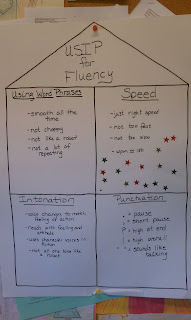 USIP
for
Fluency
Using Word Phrases
- smooth all the
time
- not choppy
- not like a robot
- not a lot of
repeating
Speed
- just right speed
- not too fast
- not too slow
Intonation
- voice changes to match
feeling or action
- reads with feeling and
attitude
- uses character voices in
fiction
- not all one tone like
a robot
Punctuation
= pause
= short pause
? = high at end
! = high overall
" " = sounds like
talking